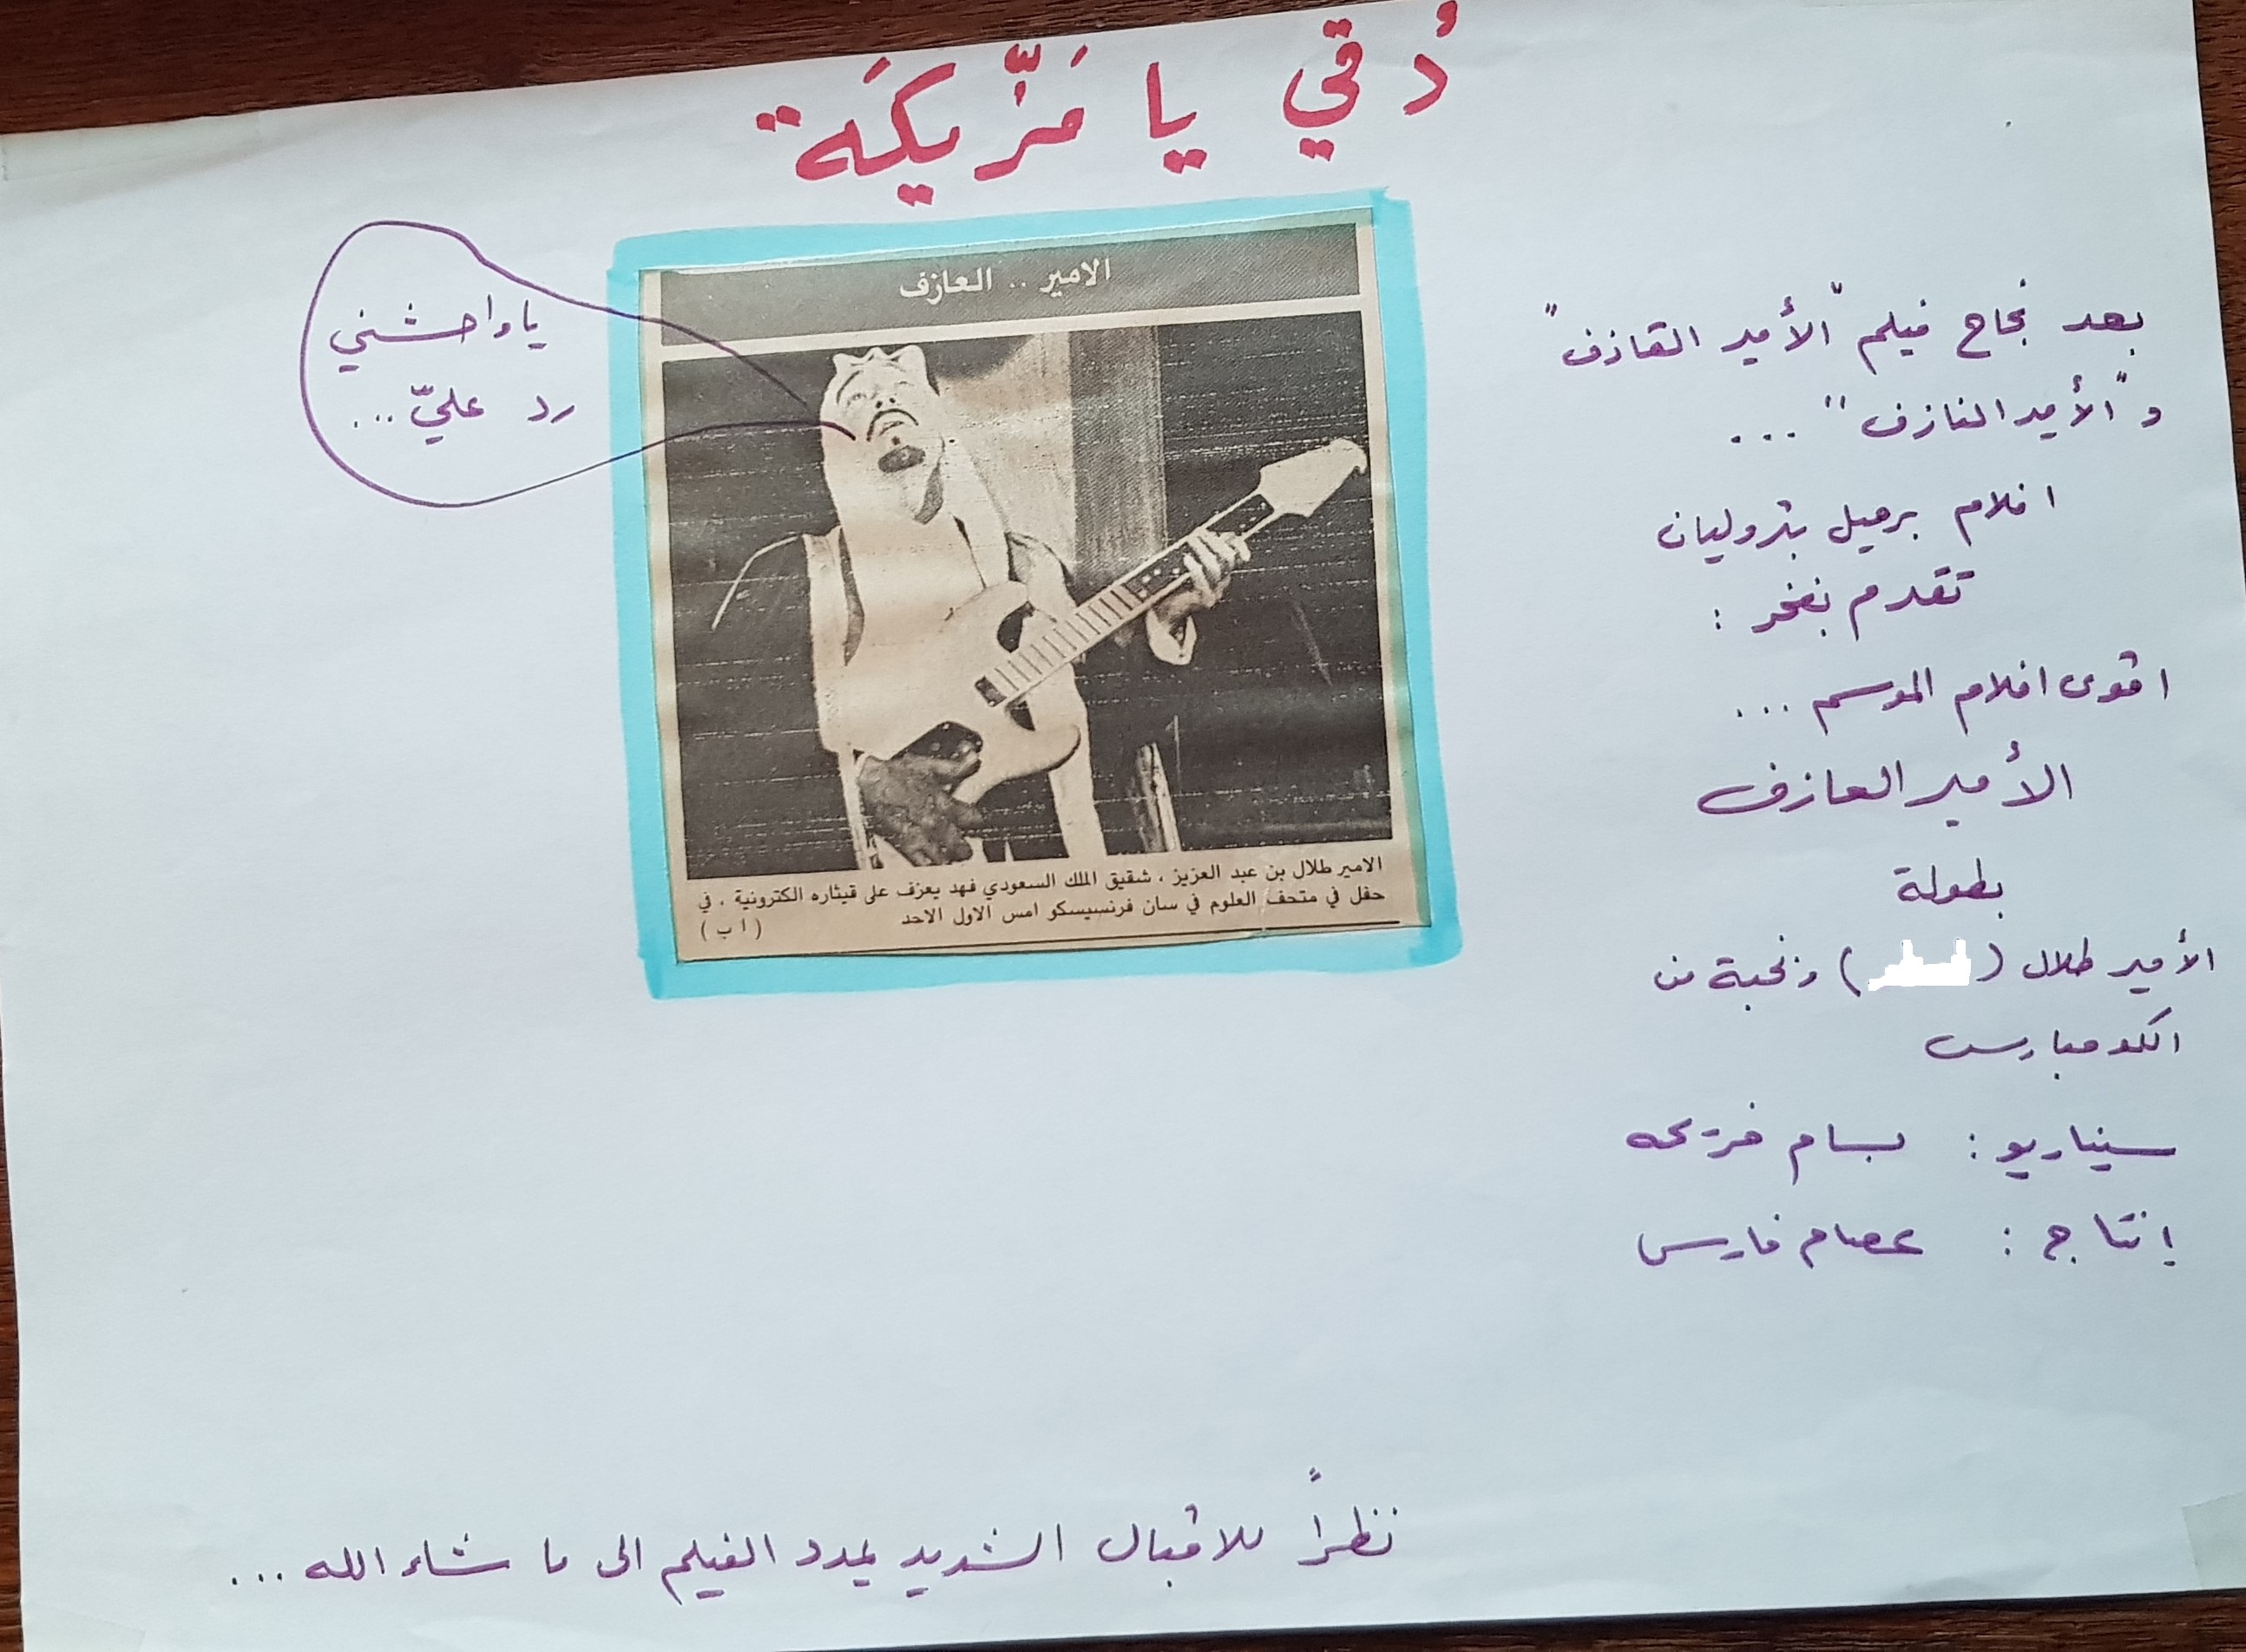 دُقي يا مَزّيكَة
الامير .. العازف
يا واحشني
رد عليّ ...
الامير طلال بن عبد العزيز ، شقيق الملك السعودي فهد يعزف على قيثاره الكترونية ، في
حفل في متحف العلوم في سان فرنسيسكو امس الاول الاحد
( ا ب )
بعد نجاح فيلم "الأمير القاذف"
و "الأمير النازف" ...
افلام برميل بتروليان
تقدم بفخر :
اقوى افلام الموسم ...
الأمير العازف
بطولة
الأمير طلال ( ) ونخبة من
الكومبارس
سيناريو : بسام فريحه
إنتاج : عصام فارس
نظراً للاقبال الشديد يمدد الفيلم الى ما شاء الله ...